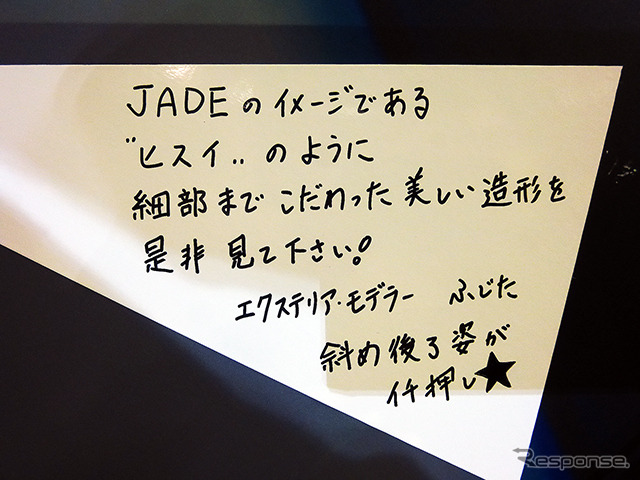 JADEのイメージである
"ヒスイ"のように
細部までこだわった美しい造形を
是非見て下さい!
エクステリア・モデラー ふじた
斜め後ろ姿が
イチ押し★
Response.